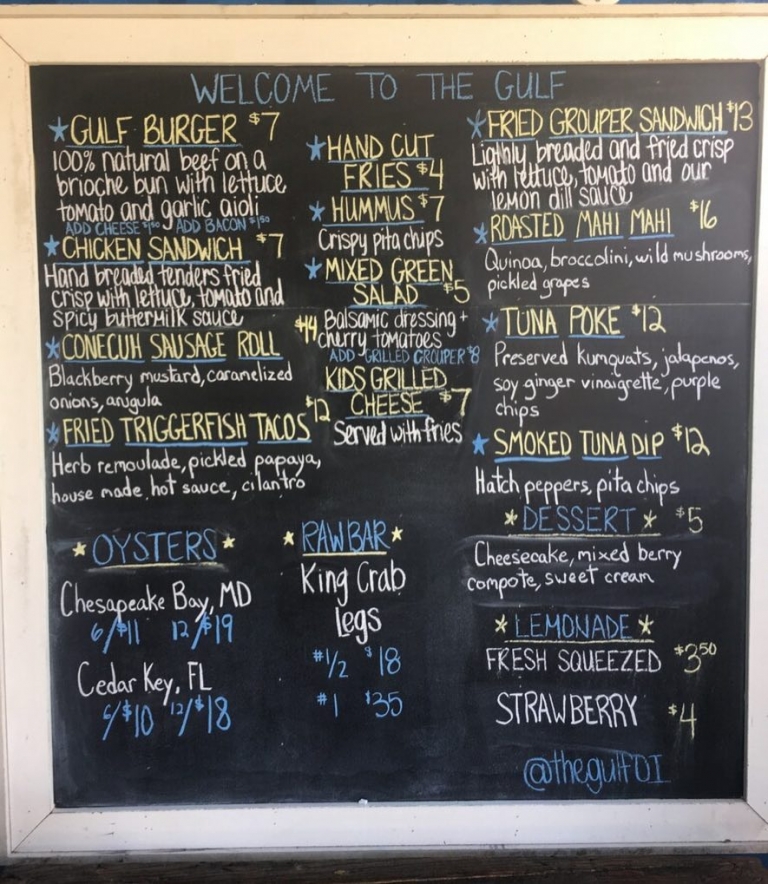 WELCOME TO THE GULF
★GULF BURGER $7
100% natural beef on a
brioche bun with lettuce
tomato and garlic aioli
ADD CHEESE $1.50 ADD BACON $1.50
★CHICKEN SANDWICH $7
Hand breaded tenders fried
crisp with lettuce, tomato and
spicy buttermilk sauce
★CONECUH SAUSAGE ROLL $14
Blackberry mustard, caramelized
onions, arugula
★FRIED TRIGGERFISH TACOS $12
Herb remoulade, pickled papaya,
house made hot sauce, cilantro
★HAND CUT
FRIES $4
★HUMMUS $7
Crispy pita chips
★MIXED GREEN
SALAD $5
Balsamic dressing +
cherry tomatoes
ADD GRILLED GROUPER $8
KIDS GRILLED
CHEESE $7
Served with fries
★FRIED GROUPER SANDWICH $13
Lighly breaded and fried crisp
with lettuce, tomato and our
lemon dill sauce
★ROASTED MAHI MAHI $16
Quinoa, broccolini, wild mushrooms,
pickled grapes
★TUNA POKE $12
Preserved kumquats, jalapenos,
soy ginger vinaigrette, purple
chips
★SMOKED TUNA DIP $12
Hatch peppers, pita chips
★OYSTERS★
Chesapeake Bay, MD
6/$11 12/$19
Cedar Key, FL
6/$10 12/$18
★RAW BAR★
King Crab
Legs
#1/2 $18
#1 $35
★DESSERT★ $5
Cheesecake, mixed berry
compote, sweet cream
★LEMONADE★
FRESH SQUEEZED $3.50
STRAWBERRY $4
@thegulfOI